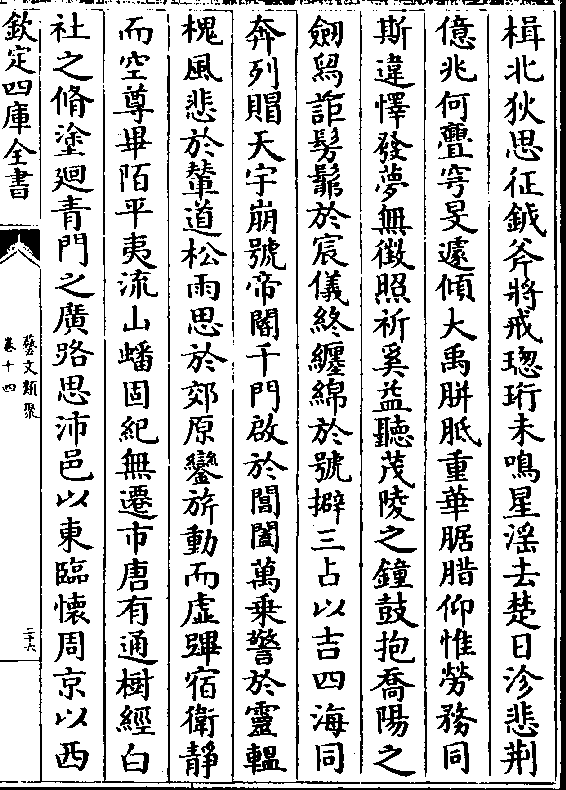 楫北狄思征鉞斧將戒璁珩未鳴星淫去楚日沴悲荆
億兆何亹穹旻遽傾大禹胼胝重華腒腊仰惟勞務同
斯違懌發夢無徴照祈奚益聽茂陵之鐘鼓抱喬陽之
劒舄詎髣髴於宸儀終纏綿於號擗三占以吉四海同
奔列賵天宇崩號帝閽千門啟於閶闔萬乗警於靈轀
槐風悲於輦道松雨思於郊原鑾旂動而虚蹕宿衛靜
而空尊畢陌平夷流山蟠固紀無遷市唐有通樹經白
社之脩塗廻青門之廣路思沛邑以東臨懷周京以西
欽定四庫全書
藝文類聚
卷十四
二十六